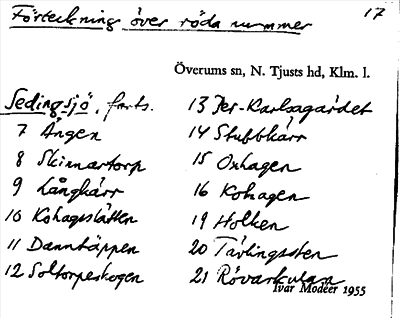 Förteckning över röda nummer
17
Överums sn, N. Tjusts hd, Klm. l.
Sedingsjö, forts.
7 Ängen
8 Skinnartorp
9 Långkärr
10 Kohagsslätten
11 Dammtäppen
12 Soltorpeskogen
13 Per-Karlsagärdet
14 Stubbkärr
15 Oxhagen
16 Kohagen
19 Holken
20 Tävlingssten
21 Rövarkulan
Ivar Modéer 1955